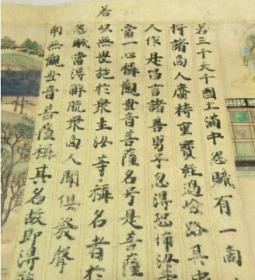 若三千大千國土滿中怨賊有一商
將諸商人齎持重寶經過險路其中
人作是唱言諸善男子勿得恐怖汝
當一心稱觀世音菩薩名号是菩薩
若
以無畏施於眾生汝等稱名者於
怨賊當得解脫眾商人聞俱發聲
南無觀世音菩薩稱其名故即得